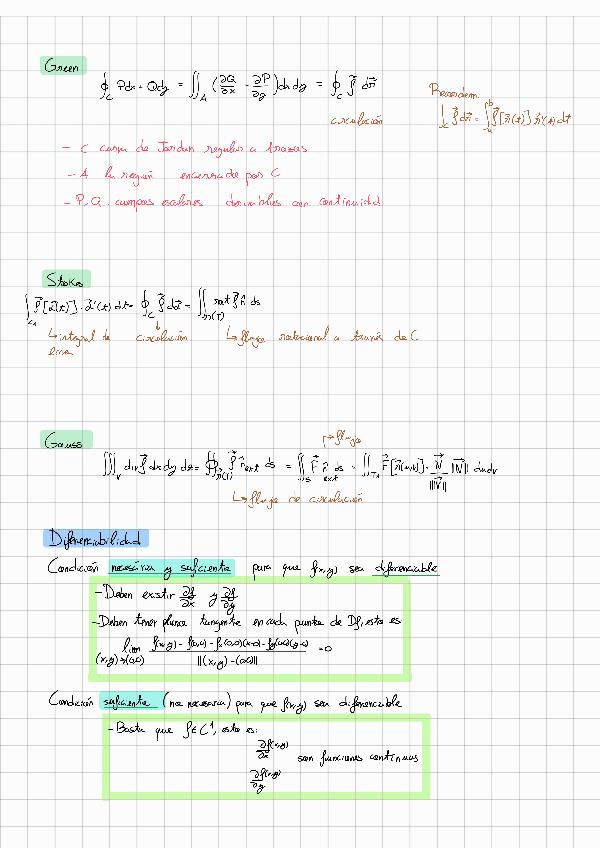 Green
∮_C Pdx + Qdy = ∬_A (∂Q/∂x - ∂P/∂y) dxdy = ∮_C f⃗ dr⃗
circulación
Recordem:
∫_C f⃗ dr⃗ = ∫_a^b f⃗[r⃗(t)] r⃗'(t) dt
- C curva de Jordan regular a trozos
- A la región encerrada por C
- P, Q campos escalares derivables con continuidad
Stokes
∫ f⃗[α⃗(t)] · α⃗'(t) dt = ∮_C f⃗ dα⃗ = ∬_r(T) rot f⃗ n̂ ds
↳ integral de línea
circulación
↳ flujo rotacional a través de C
Gauss
↱ flujo
∭_V div f⃗ dx dy dz = ∯_r(T) f⃗ n̂ext ds = ∬_S F⃗ n̂ext ds = ∬_T F⃗[r(u,v)] · N⃗/||N⃗|| ||N⃗|| dudv
↳ flujo de circulación
Diferenciabilidad
Condición necesaria y suficiente para que f(x,y) sea diferenciable
- Deben existir ∂f/∂x y ∂f/∂y
- Deben tener plano tangente en cada punto de Df, esto es
lim (x,y)→(0,0) f(x,y) - f(0,0) - fx(0,0)(x-0) - fy(0,0)(y-0) / ||(x,y)-(0,0)|| = 0
Condición suficiente (no necesaria) para que f(x,y) sea diferenciable
- Basta que f ∈ C¹, esto es:
∂f(x,y)/∂x
son funciones continuas
∂f(x,y)/∂y